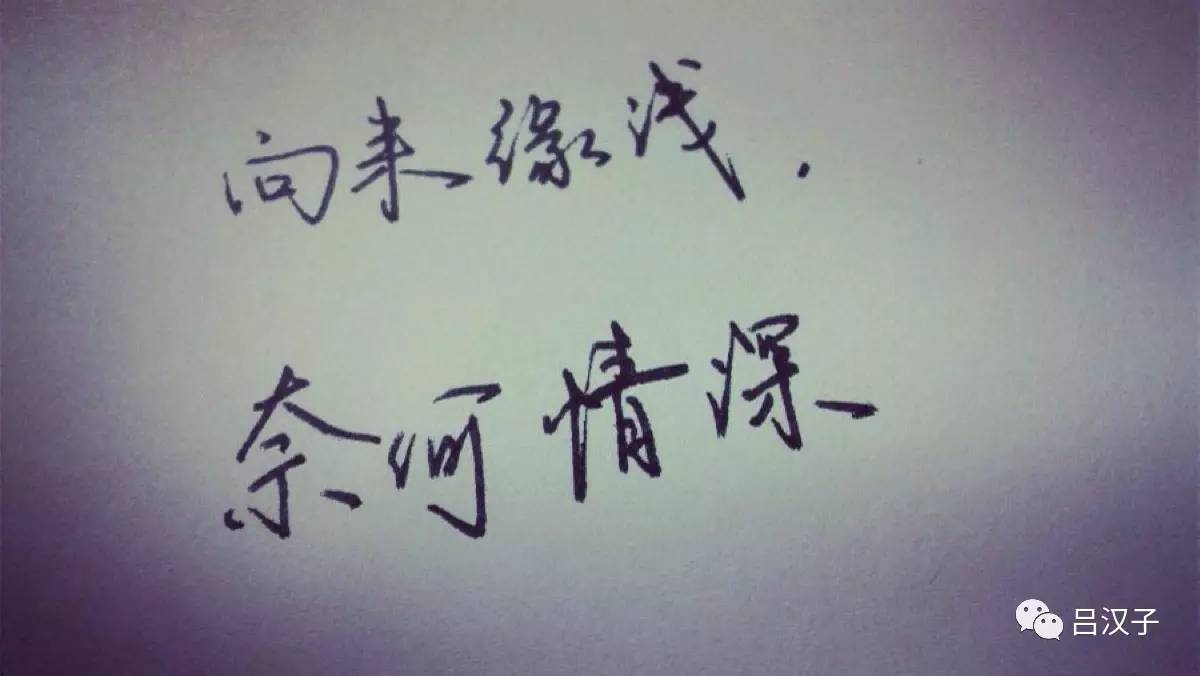 向来缘浅.
奈何情深
吕汉子